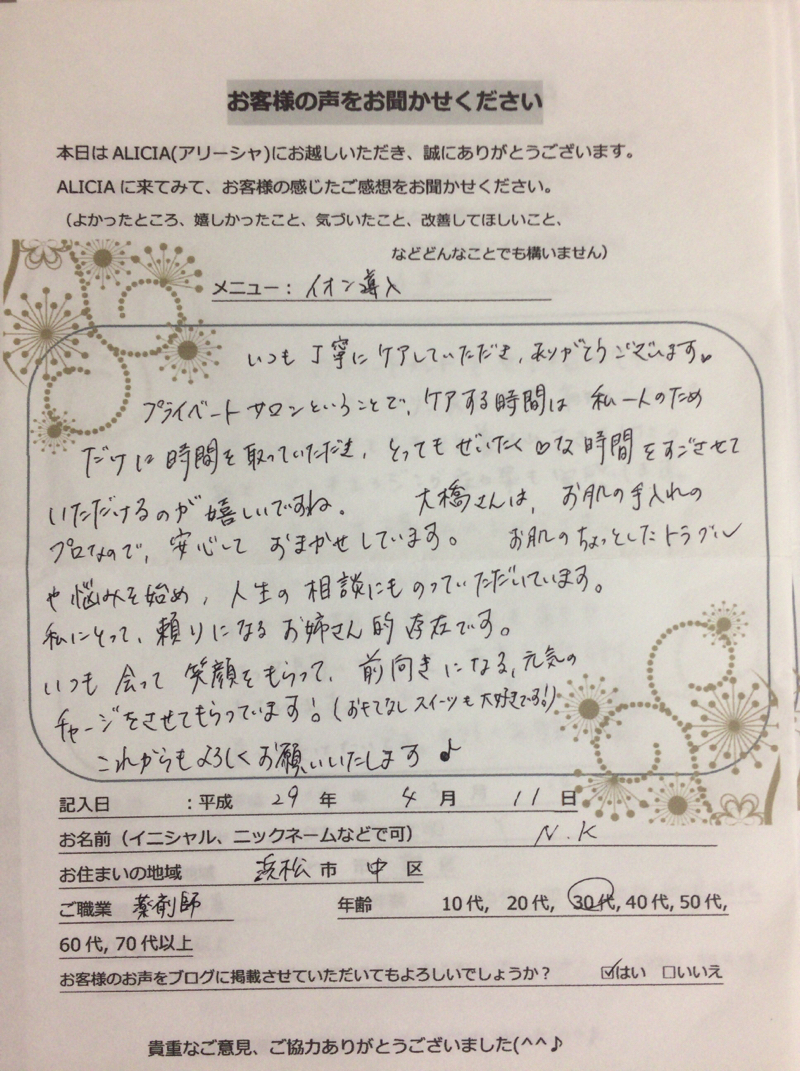 お客様の声をお聞かせください
本日は ALICIA(アリーシャ)にお越しいただき、誠にありがとうございます。
ALICIA に来てみて、お客様の感じたご感想をお聞かせください。
（よかったところ、嬉しかったこと、気づいたこと、改善してほしいこと、
などどんなことでも構いません）
メニュー： イオン導入
いつも丁寧にケアしていただき、ありがとうございます♥
プライベートサロンということで、ケアする時間は 私一人のため
だけに時間を取っていただき、とってもぜいたく♡な時間をすごさせて
いただけるのが嬉しいですね。 大橋さんは、お肌の手入れの
プロなので、安心して おまかせしています。 お肌のちょっとしたトラブル
や悩みを始め、人生の相談にものっていただいています。
私にとって、頼りになるお姉さん的存在です。
いつも会って笑顔をもらって、前向きになる、元気の
チャージをさせてもらっています！(おもてなしスイーツも大好きです！)
これからもよろしくお願いいたします♪
記入日 ：平成 29 年 4 月 11 日
お名前（イニシャル、ニックネームなどで可） N.K
お住まいの地域 浜松 市 中 区
ご職業 薬剤師 年齢 10代, 20代, 30代, 40代, 50代,
60代, 70代以上
お客様のお声をブログに掲載させていただいてもよろしいでしょうか？ ☑はい ☐いいえ
貴重なご意見、ご協力ありがとうございました(^^♪